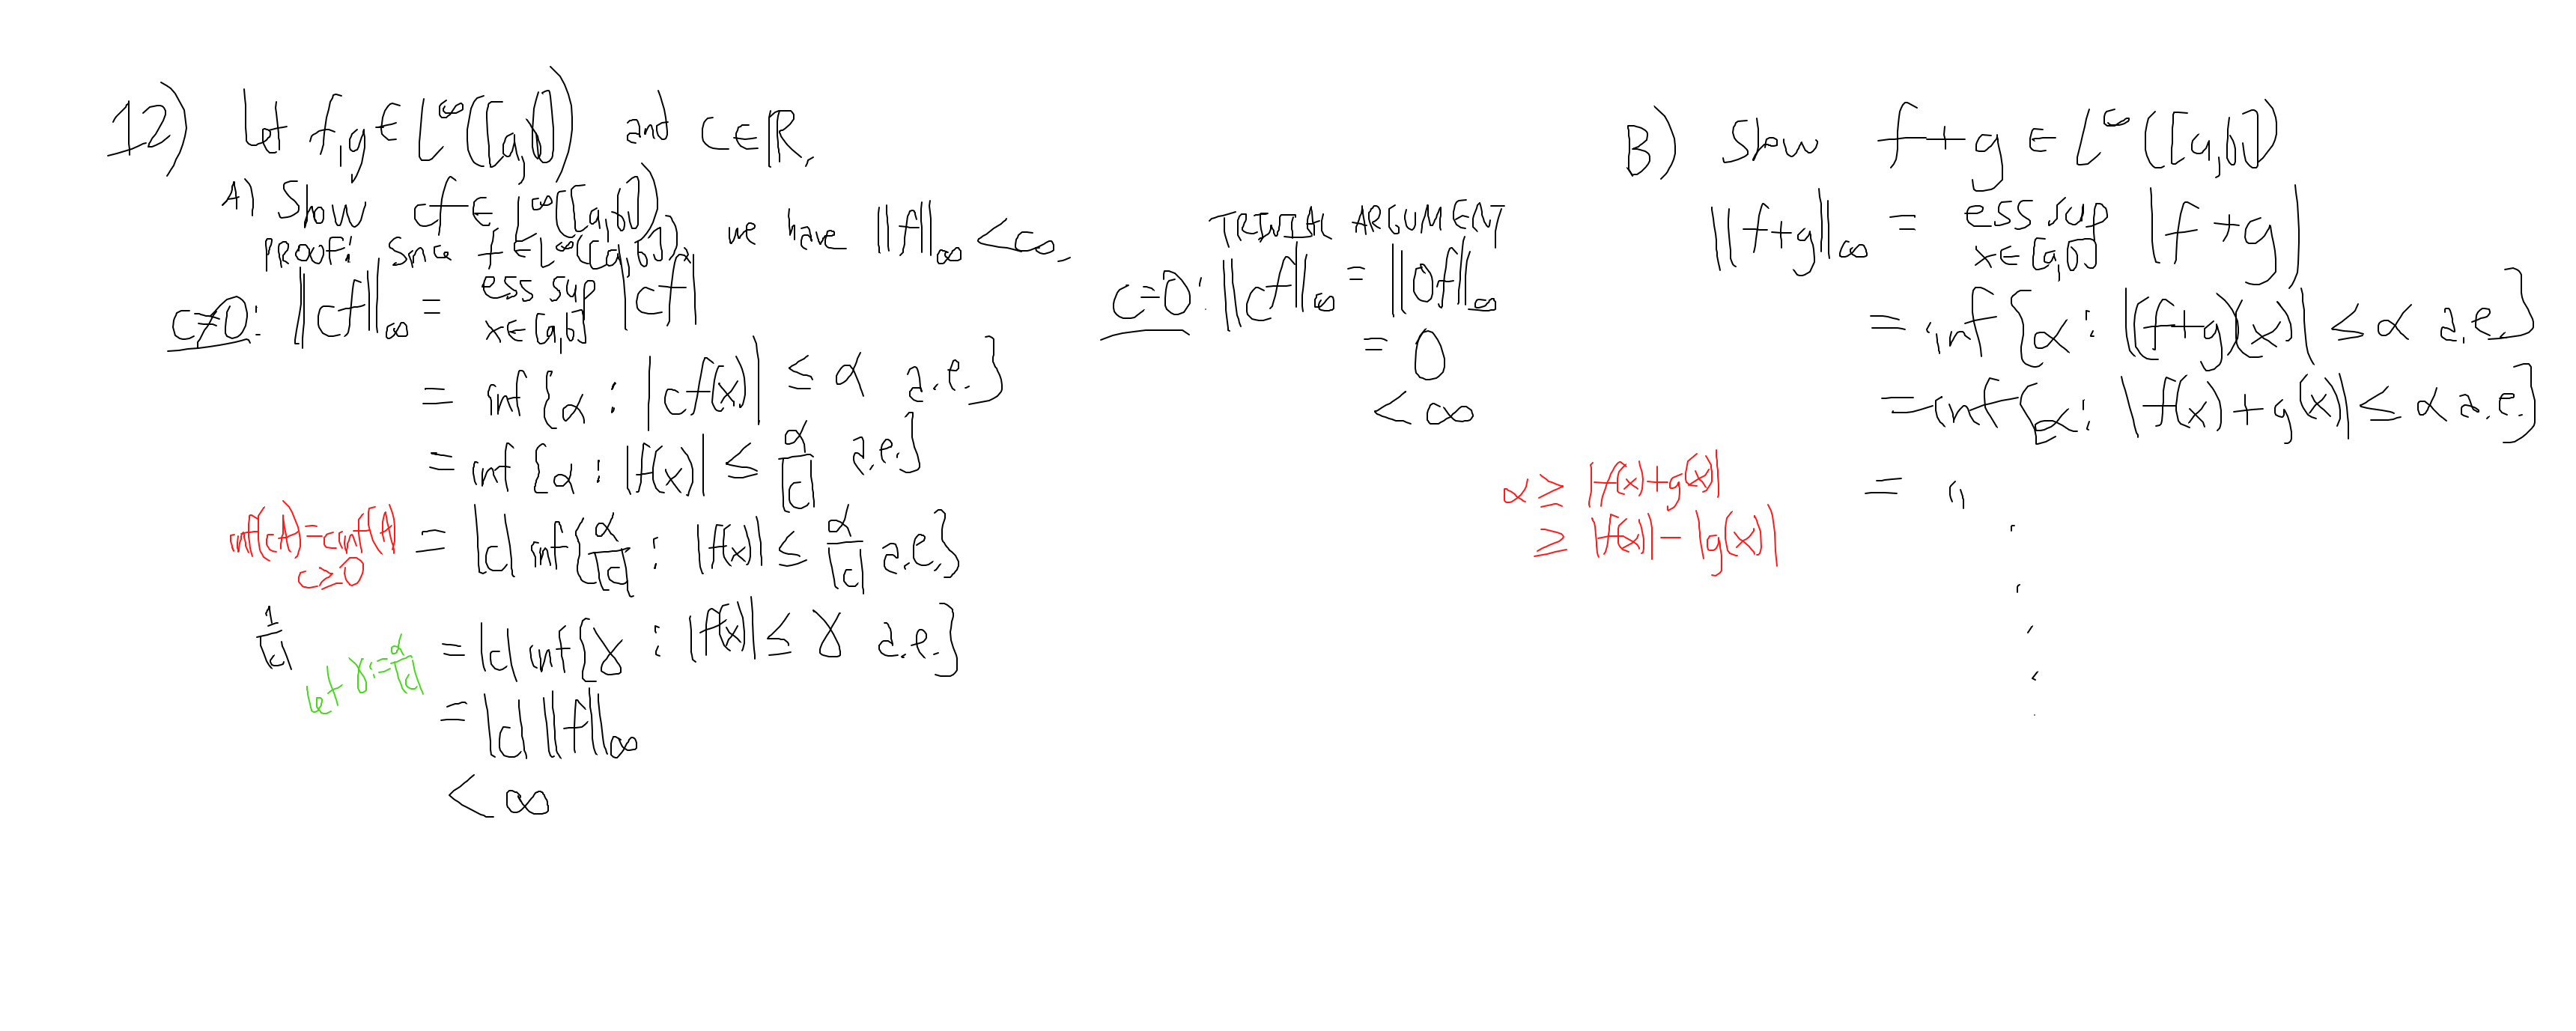 12) Let f,g ∈ L^∞([a,b]) and c ∈ ℝ.
A) Show cf ∈ L^∞([a,b]).
PROOF: Since f ∈ L^∞([a,b]), we have ||f||_∞ < ∞.
c≠0: ||cf||_∞ = ess sup_{x∈[a,b]} |cf|
= inf{α : |cf(x)| ≤ α a.e.}
= inf{α : |f(x)| ≤ α/|c| a.e.}
inf(cA)=cinf(A) = |c| inf{α/|c| : |f(x)| ≤ α/|c| a.e.}
c≥0
1/|c|
let γ:=α/|c| = |c| inf{γ : |f(x)| ≤ γ a.e.}
= |c| ||f||_∞
< ∞
TRIVIAL ARGUMENT
c=0: ||cf||_∞ = ||0f||_∞
= 0
< ∞
B) Show f+g ∈ L^∞([a,b])
||f+g||_∞ = ess sup_{x∈[a,b]} |f+g|
= inf{α : |(f+g)(x)| ≤ α a.e.}
= inf{α : |f(x)+g(x)| ≤ α a.e.}
=
α ≥ |f(x)+g(x)|
≥ |f(x)|-|g(x)|